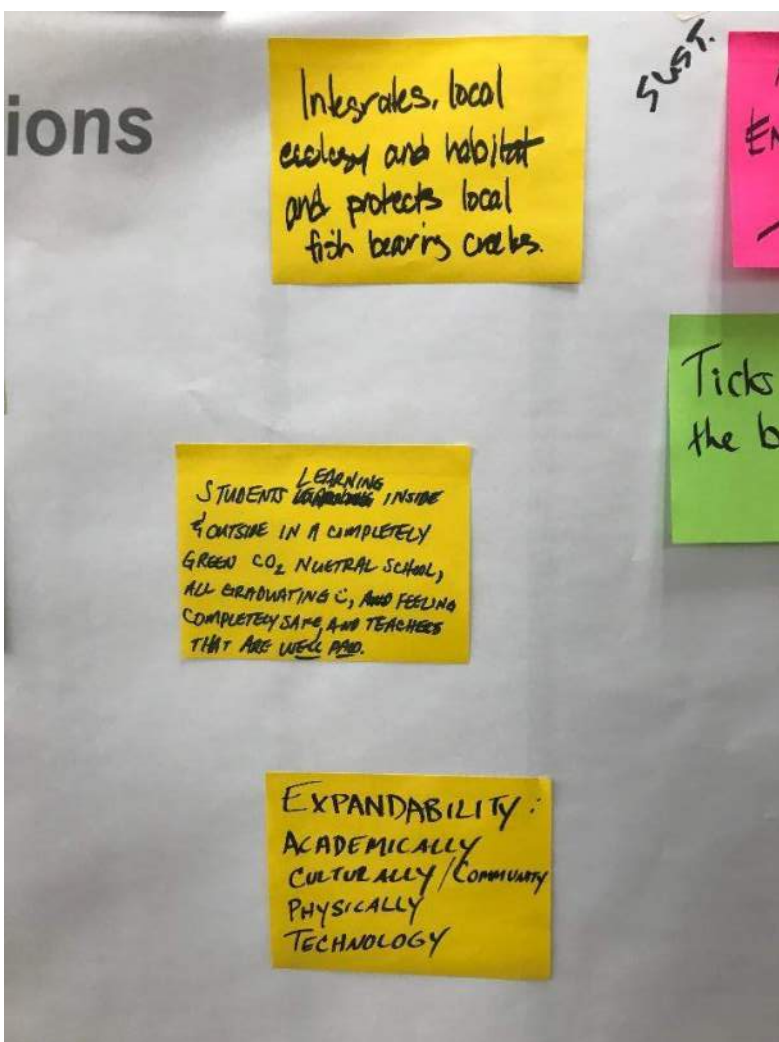 ions
Integrates, local
ecology and habitat
and protects local
fish bearing creeks.
SUST.
EN
Ticks
the b
STUDENTS LEARNING INSIDE
& OUTSIDE IN A COMPLETELY
GREEN CO₂ NUETRAL SCHOOL,
ALL GRADUATING :), AND FEELING
COMPLETELY SAFE, AND TEACHERS
THAT ARE WELL PAID.
EXPANDABILITY:
ACADEMICALLY
CULTURALLY/COMMUNITY
PHYSICALLY
TECHNOLOGY